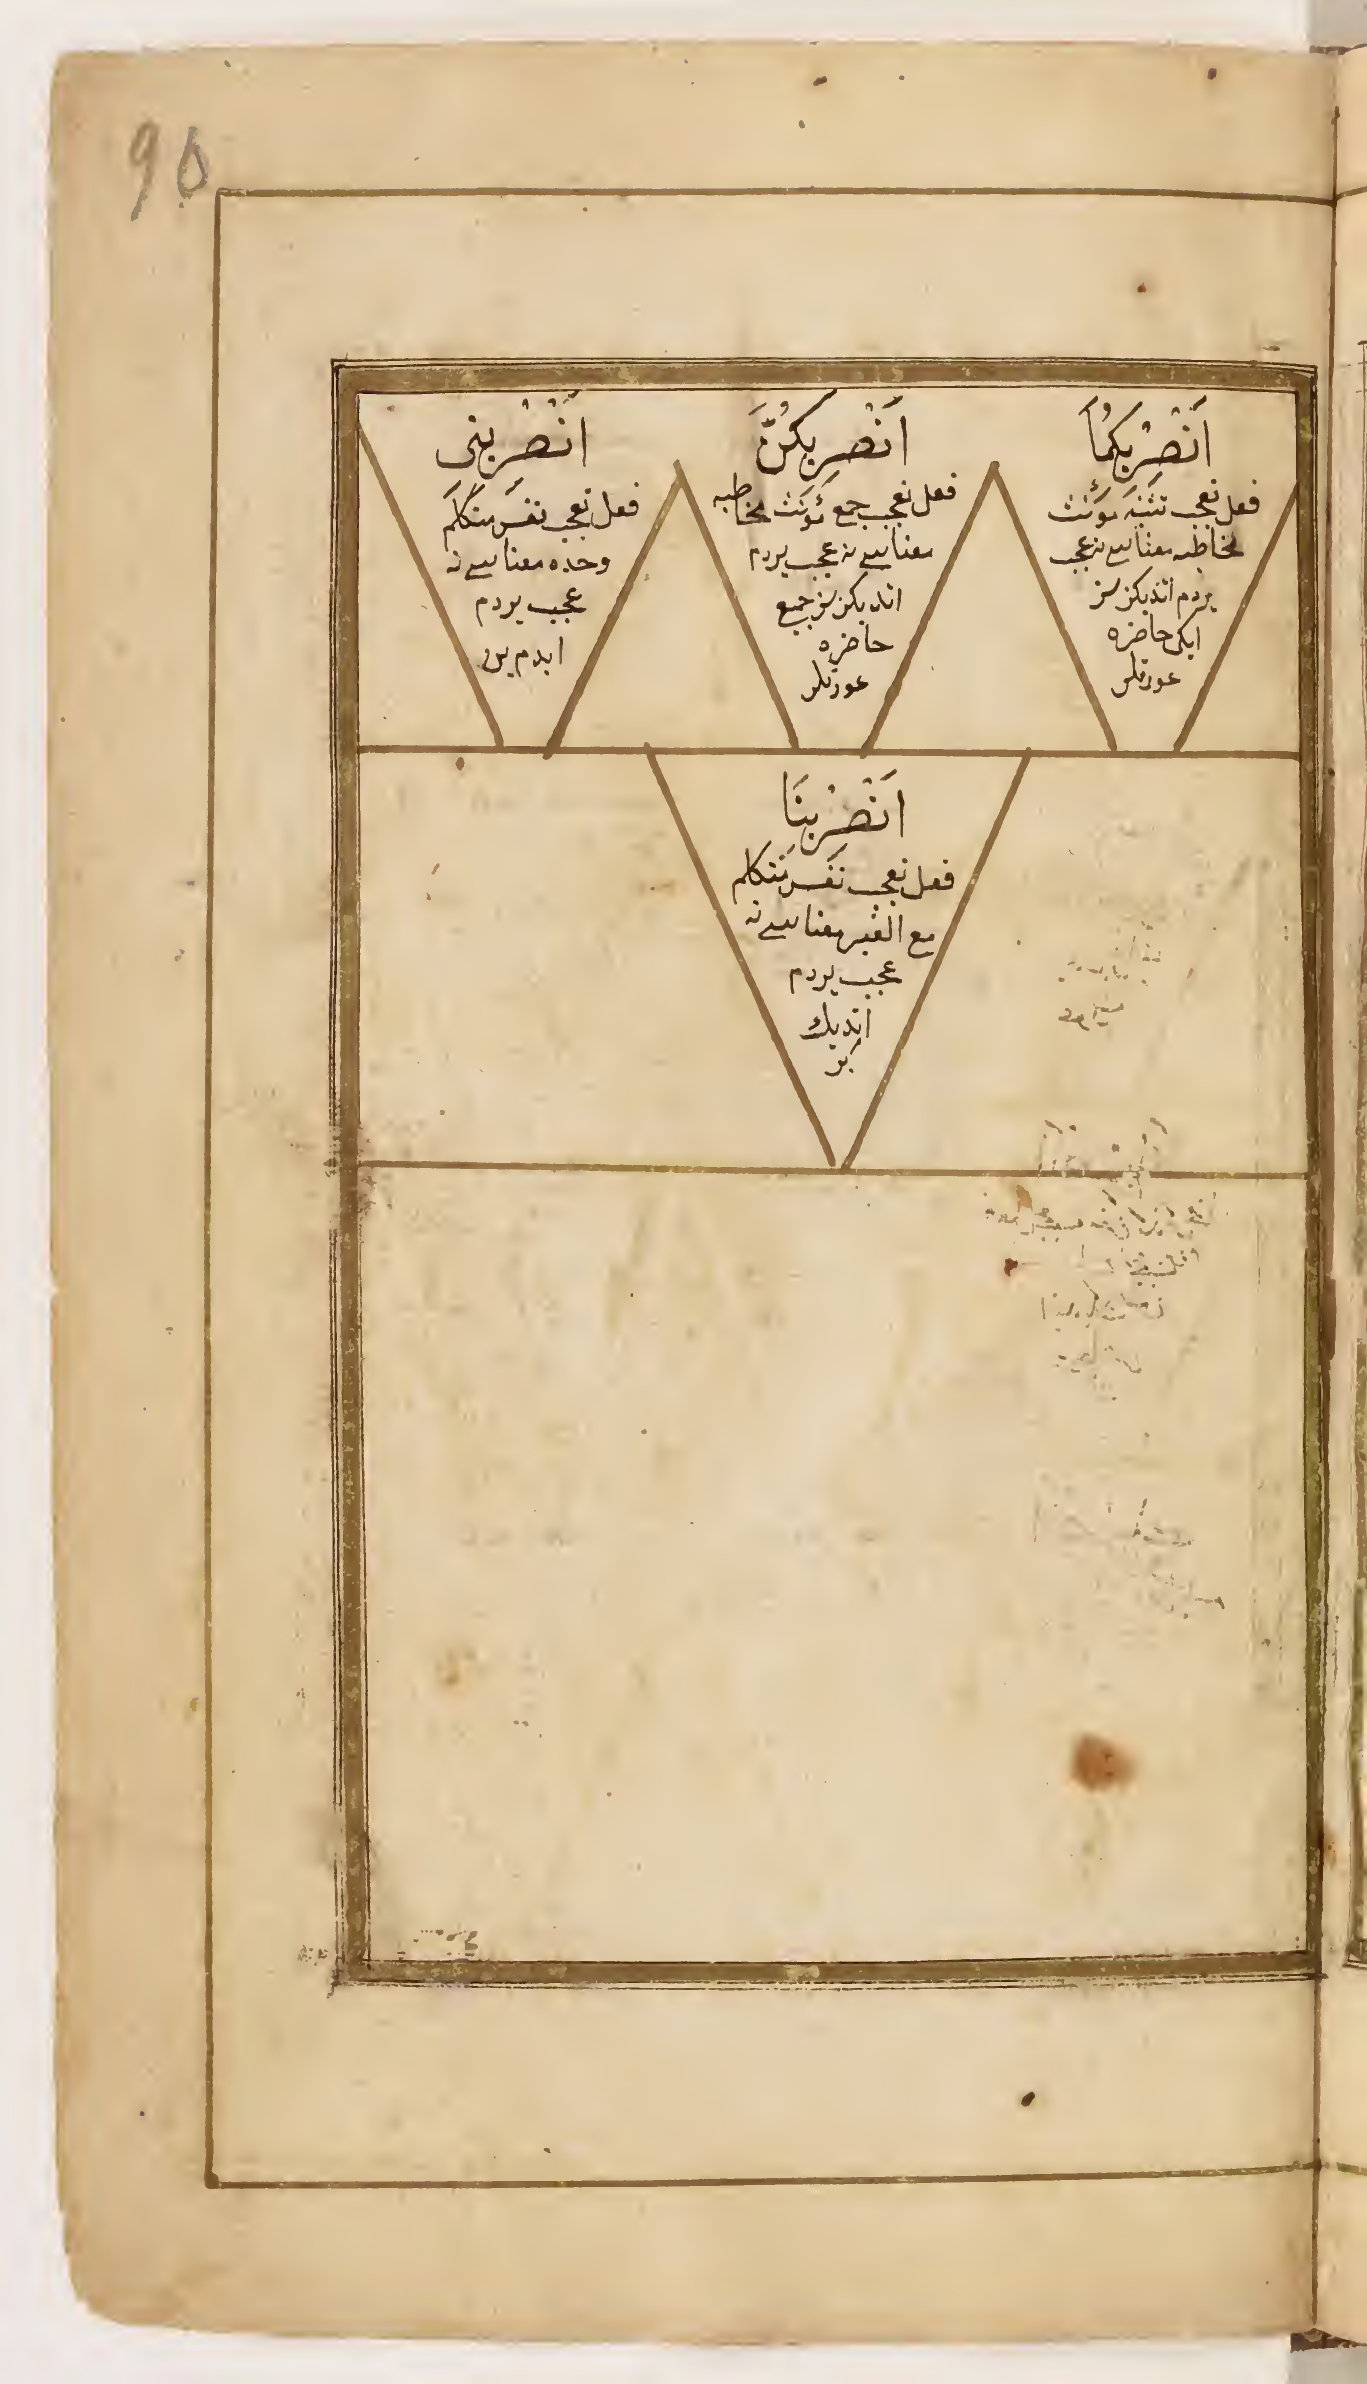 90
اَنْصِرْ بِكُمَا
فعل تعجب تثنیه مؤنث
مخاطبه معناسی نه عجب
یردم اتدیکز سز
ایکی حاضره
عورتلر
اَنْصِرْ بِكُنَّ
فعل تعجب جمع مؤنث مخاطبه
معناسی نه عجب یردم
اتدیکز سز جمیع
حاضره
عورتلر
اَنْصِرْ بِی
فعل تعجب نفس متکلم
وحده معناسی نه
عجب یردم
ایدم بن
اَنْصِرْ بِنَا
فعل تعجب نفس متکلم
مع الغیر معناسی نه
عجب یردم
اتدیك
بز